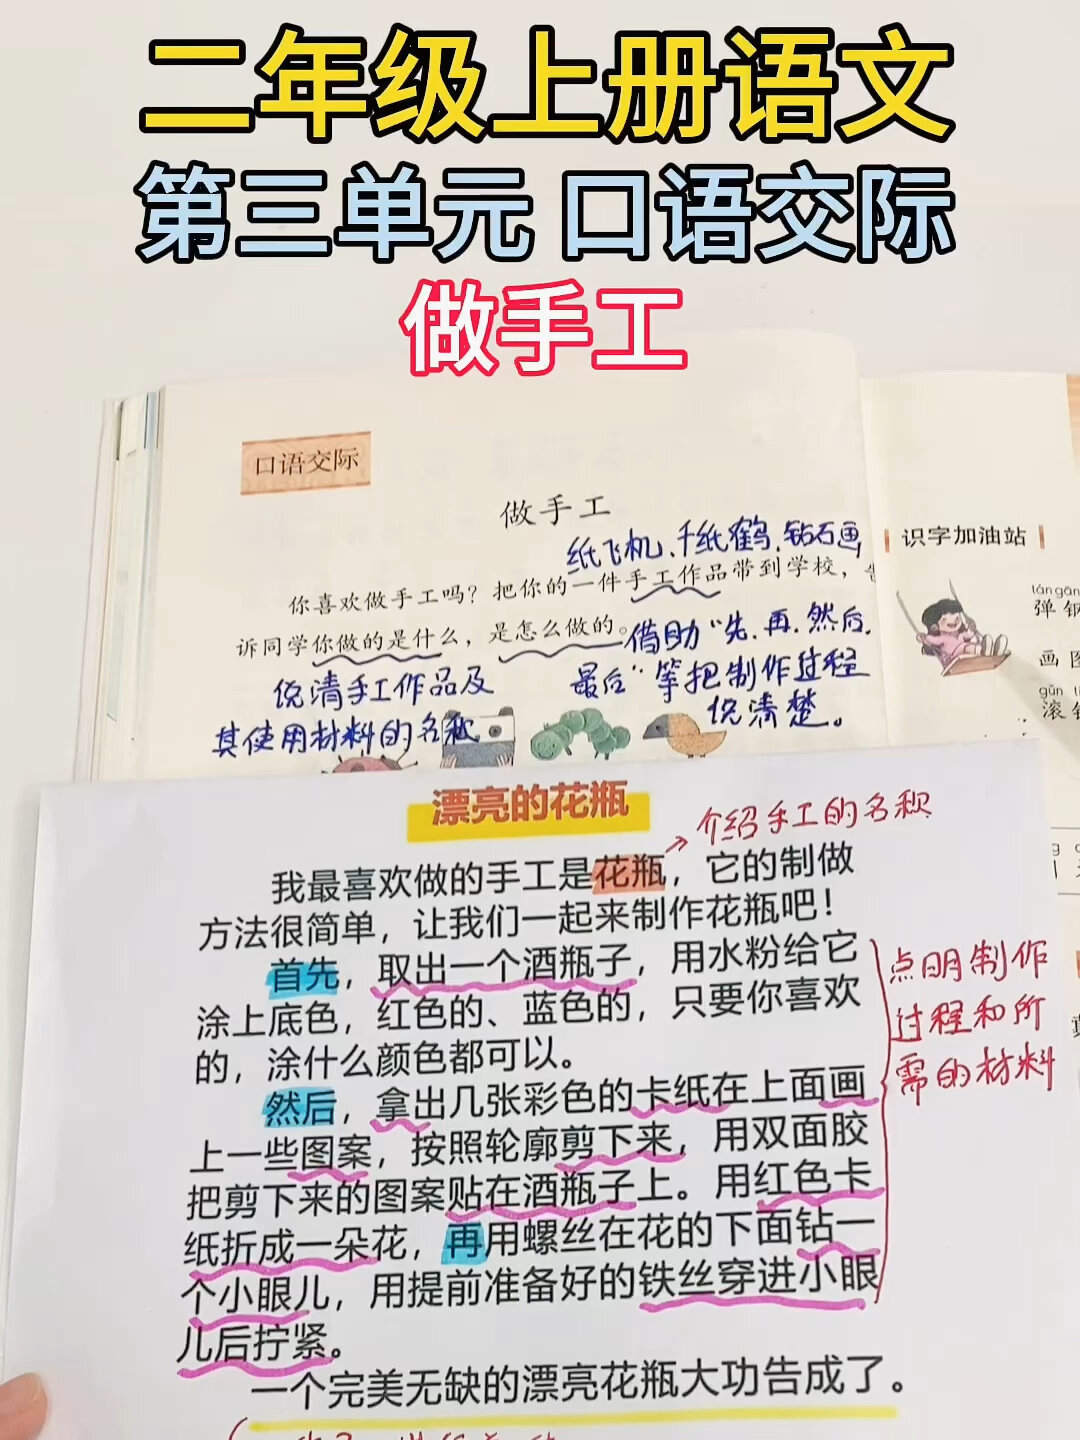 二年级上册语文
第三单元 口语交际
做手工
口语交际
做手工
纸飞机、千纸鹤、钻石画
你喜欢做手工吗？把你的一件手工作品带到学校，告
诉同学你做的是什么，是怎么做的。
借助“先、再、然后、
最后”等把制作过程
说清楚。
说清手工作品及
其使用材料的名称
识字加油站
tán gāng
弹 钢
画 图
gǔn
滚
漂亮的花瓶
介绍手工的名称
我最喜欢做的手工是花瓶，它的制做
方法很简单，让我们一起来制作花瓶吧！
首先，取出一个酒瓶子，用水粉给它
涂上底色，红色的、蓝色的，只要你喜欢
的，涂什么颜色都可以。
然后，拿出几张彩色的卡纸在上面画
上一些图案，按照轮廓剪下来，用双面胶
把剪下来的图案贴在酒瓶子上。用红色卡
纸折成一朵花，再用螺丝在花的下面钻一
个小眼儿，用提前准备好的铁丝穿进小眼
儿后拧紧。
一个完美无缺的漂亮花瓶大功告成了。
点明制作
过程和所
需的材料